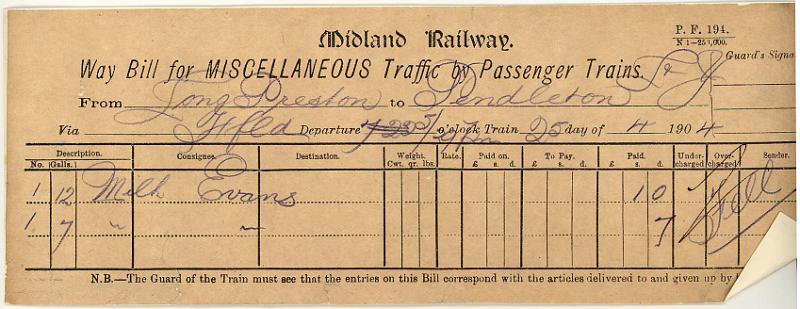 Midland Railway.
P. F. 194.
Way Bill for MISCELLANEOUS Traffic by Passenger Trains.
Guard's Signa
From Long Preston to Pendleton L & Y
Via Hfld Departure o'clock Train 25 day of 4 1904
Description. Consignee. Destination. Weight. Rate. Paid on. To Pay. Paid. Under-charged Over-charged. Sender.
No. Galls. Cwt. qr. lbs. £ s. d. £ s. d. £ s. d.
1 12 Milk Evans 1 0
1 7 " " 7
N.B.—The Guard of the Train must see that the entries on this Bill correspond with the articles delivered to and given up by